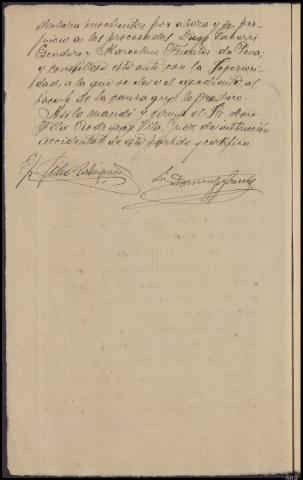 declara insolventes por ahora y sin per-
juicio a los procesados Diego
Escudero y Marcelino de Pena;
y consultese este auto con la Superiori-
dad, a la que se eleva el expediente al
de la causa que lo produce.
Así lo mandó y firma el Sr. Don
Félix Rodríguez Vila, Juez de instrucción
accidental de este partido y certifico.
Félix Rodríguez